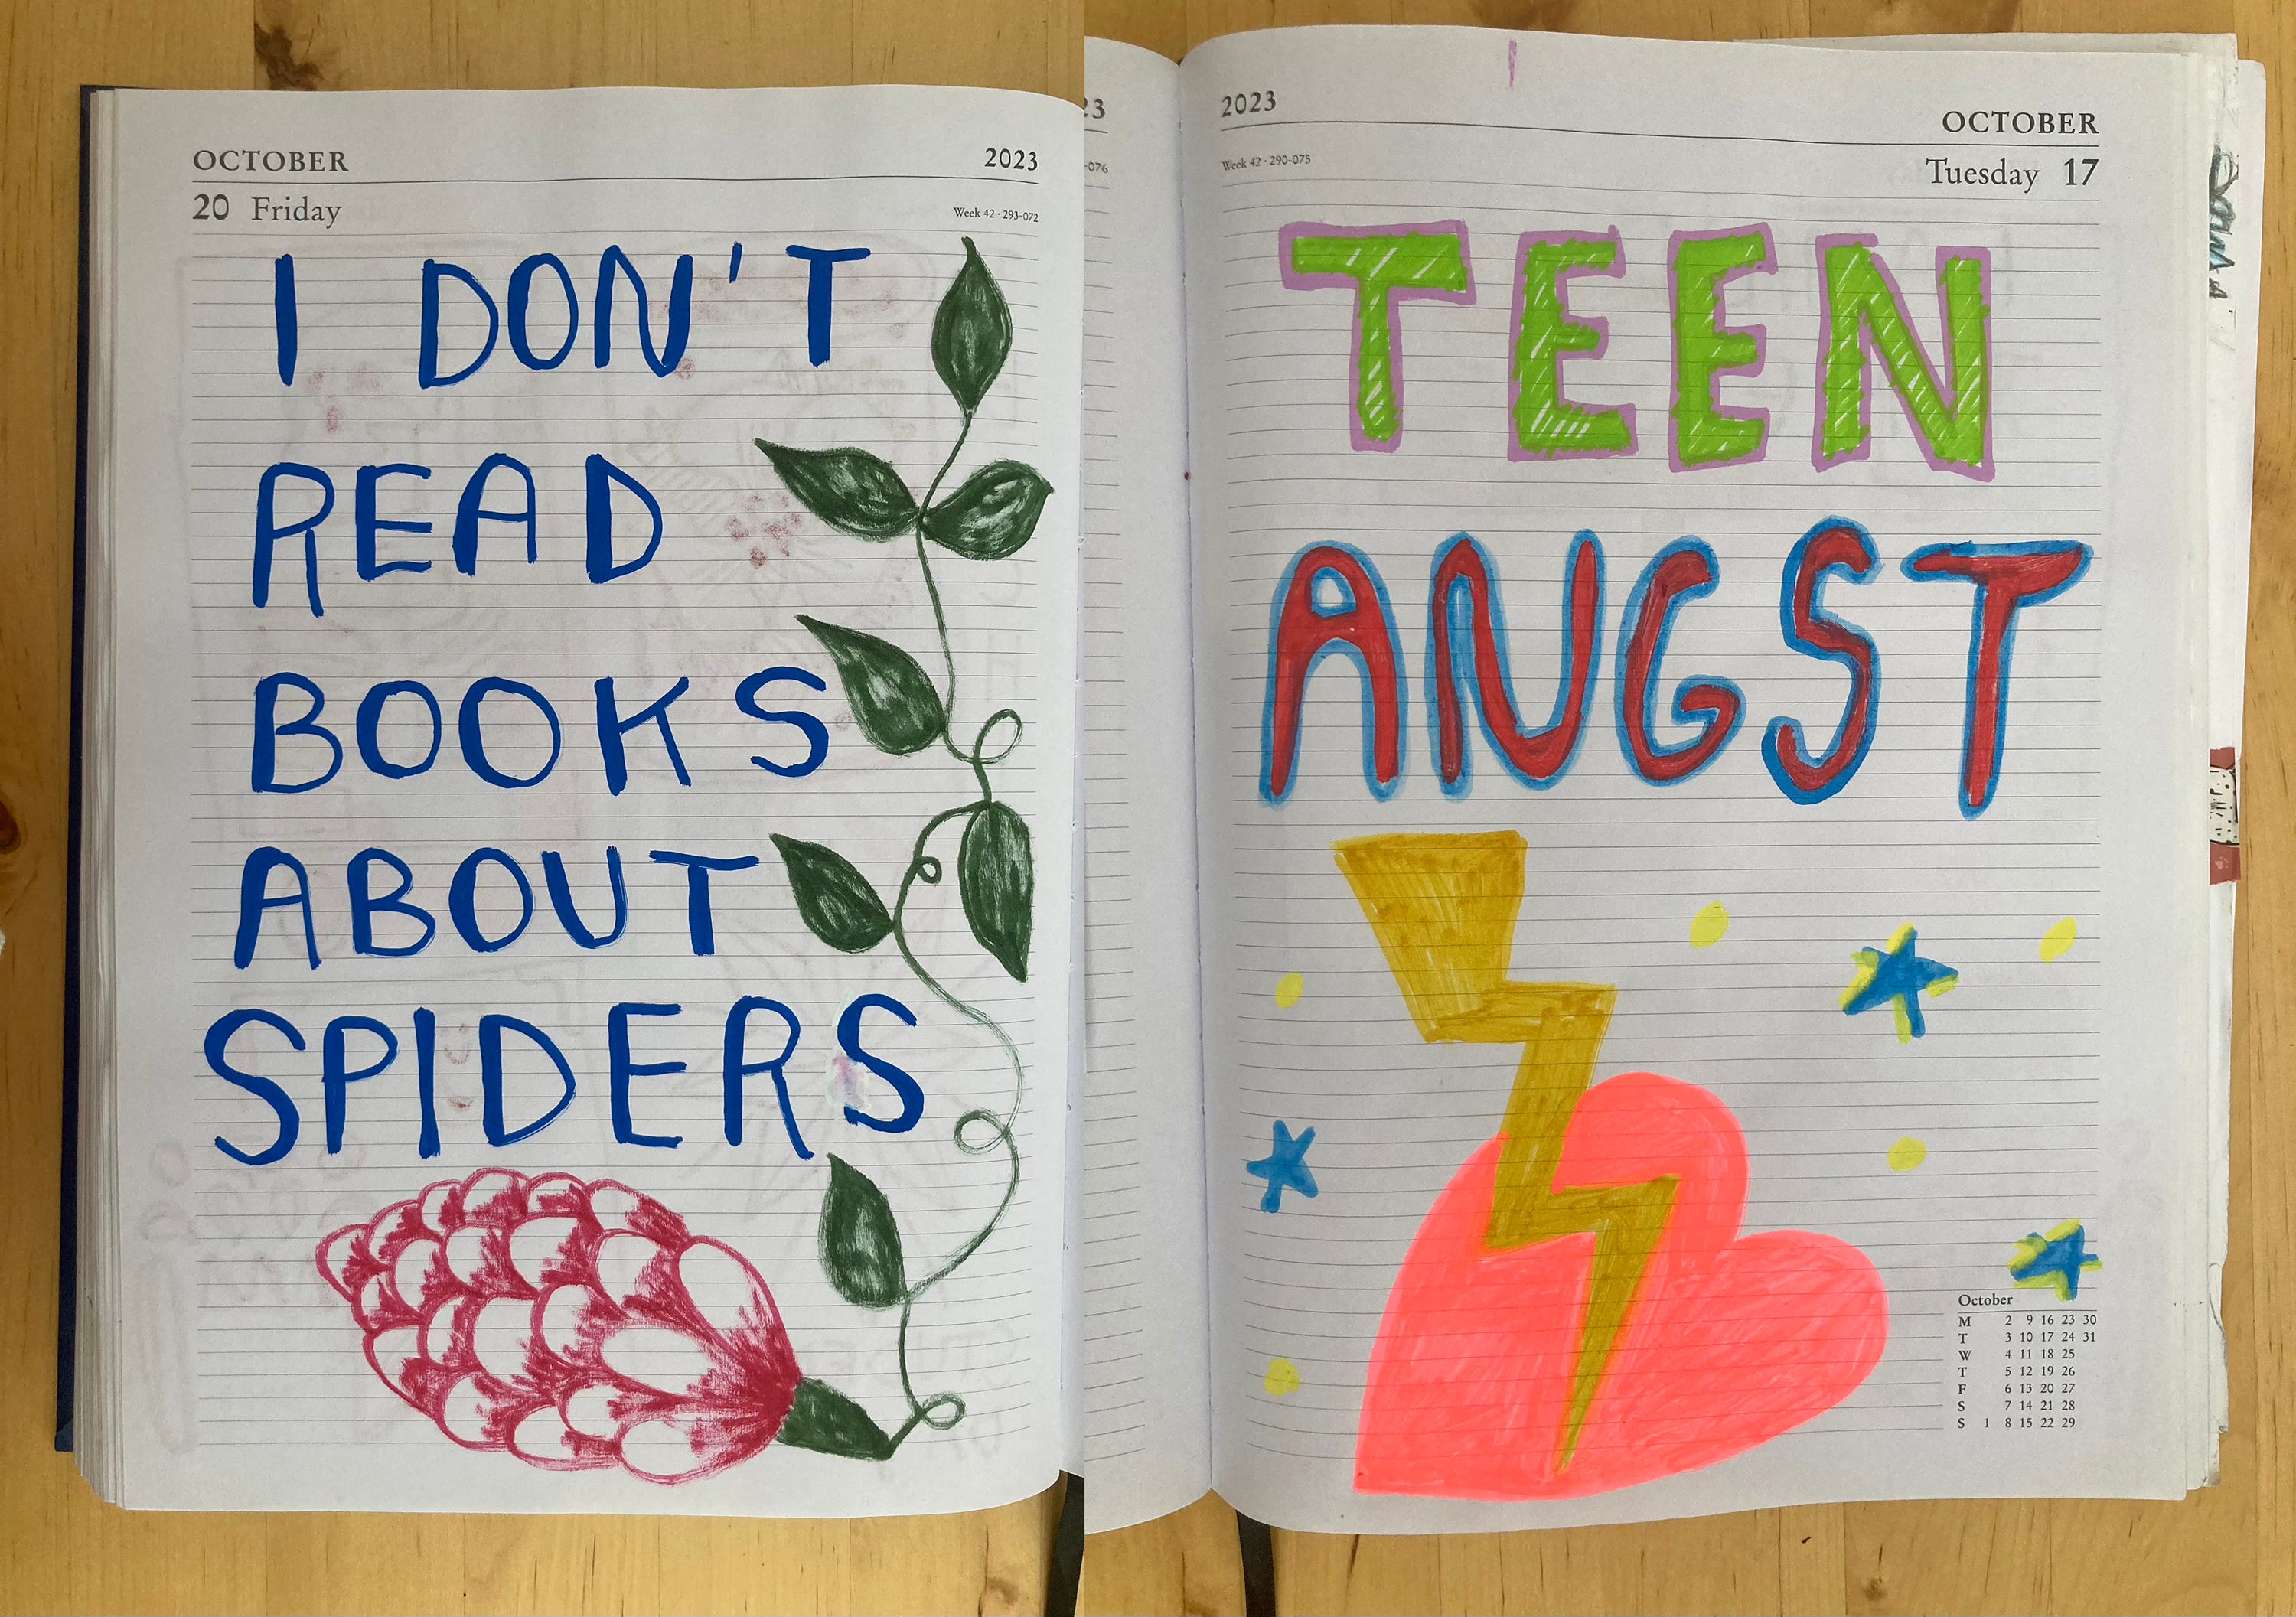 OCTOBER 2023
20 Friday Week 42 · 293-072
I DON'T
READ
BOOKS
ABOUT
SPIDERS
23
-076
2023 OCTOBER
Week 42 · 290-075 Tuesday 17
TEEN
ANGST
October
M 2 9 16 23 30
T 3 10 17 24 31
W 4 11 18 25
T 5 12 19 26
F 6 13 20 27
S 7 14 21 28
S 1 8 15 22 29